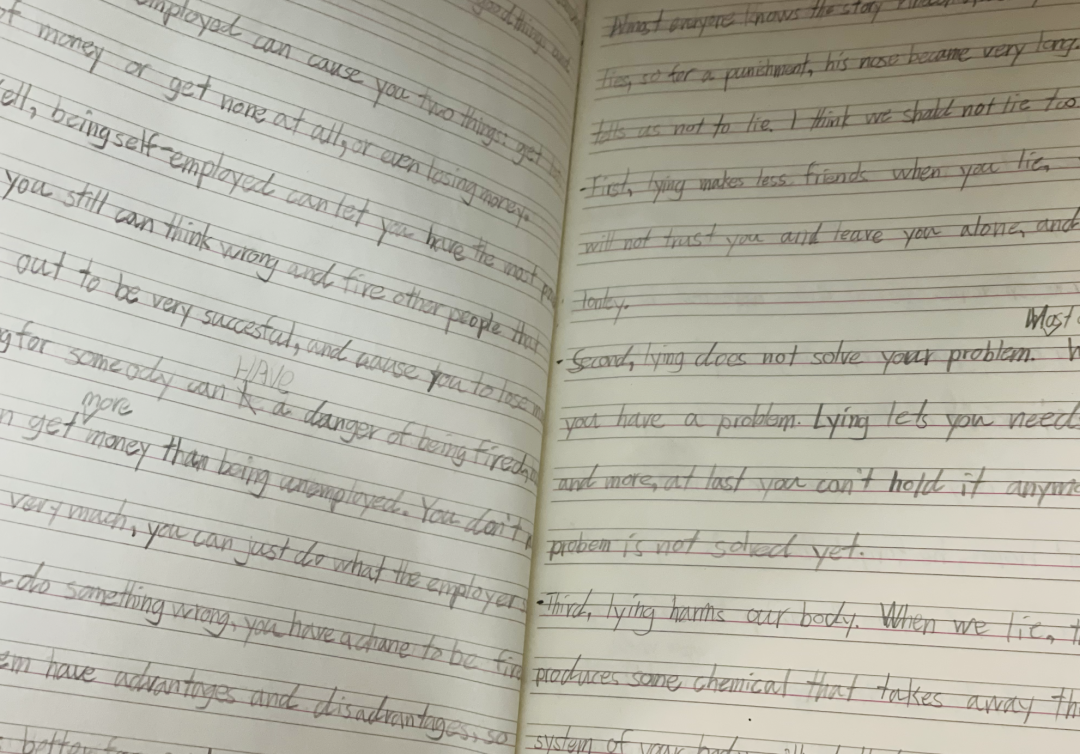 good things and
employed can cause you two things: get
of money or get none at all, or even losing money.
ell, being self-employed can let you have the most
you still can think wrong and fire other people that
out to be very succesful, and cause you to lose
g for someody can HAVE a danger of being fired,
n get more money than being unemployed. You don't
very much, you can just do what the employer
do something wrong, you have a chane to be fire
em have advantages and disadvantages, so
Almost everyone knows the story
lies, so for a punishment, his nose became very long.
tells us not to lie. I think we shald not lie
-First, lying makes less friends when you lie,
will not trust you and leave you alone, and
lonley.
Most
·Second, lying does not solve your problem. W
you have a problem. Lying lets you need
and more, at last you can't hold it anymo
probem is not solved yet.
·Third, lying harms our body. When we lie, t
produces some chemical that takes away th
system of your body